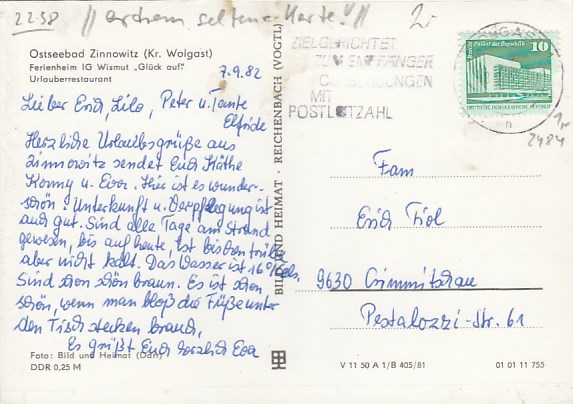 22.58 // extrem seltene Karte! //
2,-
Ostseebad Zinnowitz (Kr. Wolgast)
Ferienheim IG Wismut „Glück auf"
Urlauberrestaurant
7.9.82
Lieber Erich, Lilo, Peter u. Tante
Elfride
Herzliche Urlaubsgrüße aus
Zinnowitz sendet Euch Käthe
Konny u. Eva. Hier ist es wunder-
schön. Unterkunft u. Verpflegung ist
auch gut. Sind alle Tage am Strand
gewesen, bis auf heute. Ist bischen trüb
aber nicht kalt. Das Wasser ist 16° Cels.
Sind schon schön braun. Es ist schon
schön, wenn man bloß die Füße unter
den Tisch stecken brauch.
Es grüßt Euch herzlich Eva
Foto: Bild und Heimat (Dörr)
DDR 0,25 M
BILD UND HEIMAT · REICHENBACH (VOGTL)
ZIELGERICHTET
ZUM EMPFÄNGER
SENDUNGEN
MIT
POSTLEITZAHL
Berlin, Palast der Republik 10
DEUTSCHE DEMOKRATISCHE REPUBLIK
n
1,-
2484
Fam
Erich Tiol
9630 Crimmitschau
Pestalozzi-Str. 61
V 11 50 A 1/B 405/81
01 01 11 755